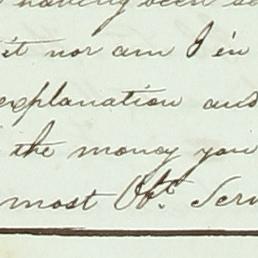 having been
it nor am I in
explanation and
the money you
most Obt. Serv